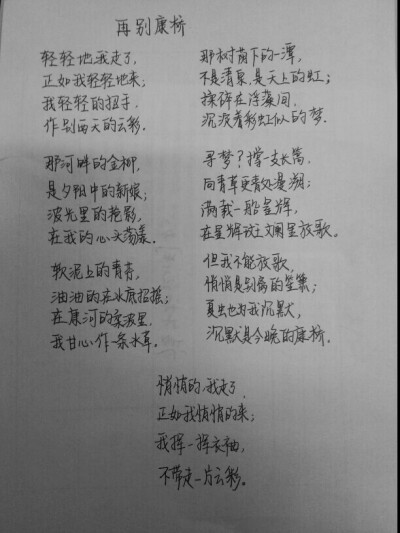 再别康桥
轻轻地我走了,
正如我轻轻地来;
我轻轻的招手,
作别西天的云彩.
那河畔的金柳,
是夕阳中的新娘;
波光里的艳影,
在我的心头荡漾.
软泥上的青荇,
油油的在水底招摇;
在康河的柔波里,
我甘心作一条水草.
那树荫下的一潭,
不是清泉是天上的虹;
揉碎在浮藻间,
沉淀着彩虹似的梦.
寻梦?撑一支长篙,
向青草更青处漫溯;
满载一船星辉,
在星辉斑斓里放歌.
但我不能放歌,
悄悄是别离的笙箫;
夏虫也为我沉默,
沉默是今晚的康桥.
悄悄的,我走了,
正如我悄悄的来;
我挥一挥衣袖,
不带走一片云彩.